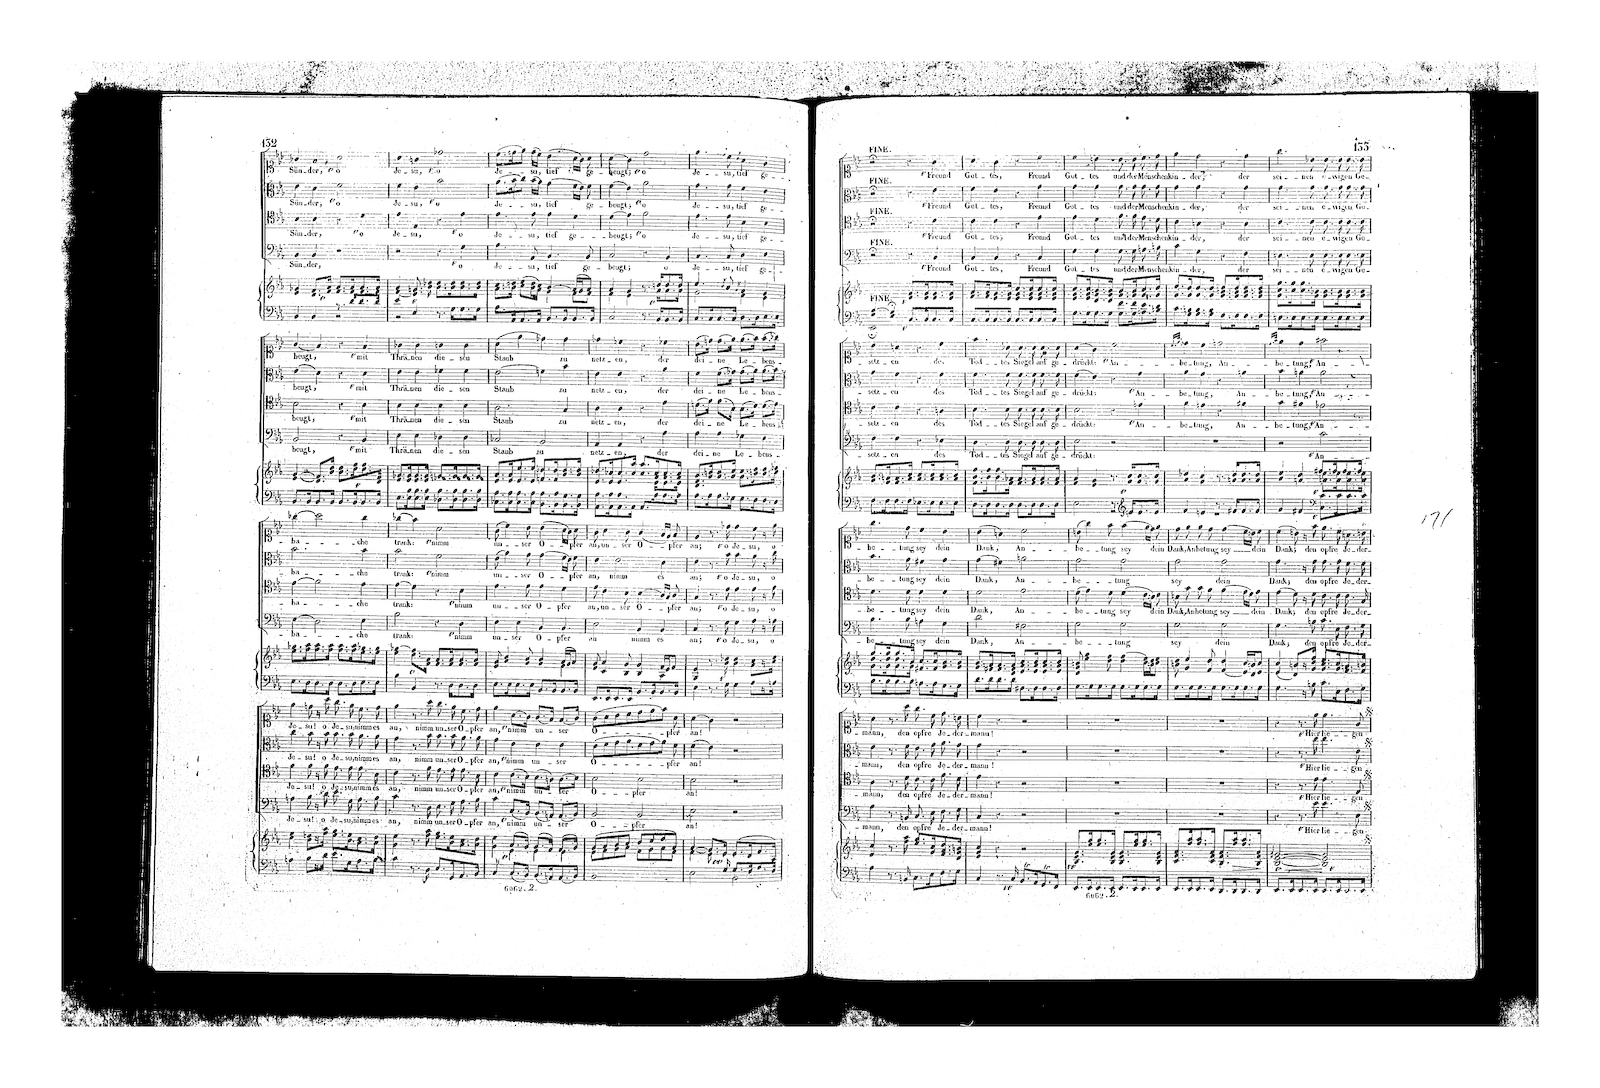 132
Sün_der, o Je_su, o Je_su, tief ge_beugt; o Je_su, tief ge_
Sün_der, o Je_su, o Je_su, tief ge_beugt; o Je_su, tief ge_
Sün_der, o Je_su, o Je_su, tief ge_beugt; o Je_su, tief ge_
Sün_der, o Je_su, tief ge_beugt; o Je_su, tief ge_
beugt, mit Thrä_nen die_sen Staub zu netz_en, der dei_ne Le_bens_
beugt, mit Thrä_nen die_sen Staub zu netz_en, der dei_ne Le_bens_
beugt, mit Thrä_nen die_sen Staub zu netz_en, der dei_ne Le_bens_
beugt, mit Thrä_nen die_sen Staub zu netz_en, der dei_ne Le_bens_
bä_che trank: nimm un_ser O_pfer an, un_ser O_pfer an; o Je_su, o
bä_che trank: nimm un_ser O_pfer an, nimm es an; o Je_su, o
bä_che trank: nimm un_ser O_pfer an, un_ser O_pfer an; o Je_su, o
bä_che trank: nimm un_ser O_pfer an nimm es an; o Je_su, o
Je_su! o Je_su, nimm es an, nimm un_ser O_pfer an, nimm un_ser O_pfer an!
Je_su! o Je_su, nimm es an, nimm un_ser O_pfer an, nimm un_ser O_pfer an!
Je_su! o Je_su, nimm es an, nimm un_ser O_pfer an, nimm un_ser O_pfer an!
Je_su! o Je_su, nimm es an, nimm un_ser O_pfer an, nimm un_ser O_pfer an!
6062.2.
133
FINE.
Freund Got_tes, Freund Got_tes und der Menschenkin_der, der sei_nen e_wigen Ge_
FINE.
Freund Got_tes, Freund Got_tes und der Menschenkin_der, der sei_nen e_wigen Ge_
FINE.
Freund Got_tes, Freund Got_tes und der Menschenkin_der, der sei_nen e_wigen Ge_
FINE.
Freund Got_tes, Freund Got_tes und der Menschenkin_der, der sei_nen e_wigen Ge_
FINE.
setz_en des Tod_tes Siegel auf ge_drückt: An_be_tung, An_be_tung, An_
setz_en des Tod_tes Siegel auf ge_drückt: An_be_tung, An_be_tung, An_
setz_en des Tod_tes Siegel auf ge_drückt: An_be_tung, An_be_tung, An_
setz_en des Tod_tes Siegel auf ge_drückt: An_
be_tung sey dein Dank, An_be_tung sey dein Dank, Anbetung sey dein Dank; den opfre Je_der_
be_tung sey dein Dank, An_be_tung sey dein Dank; den opfre Je_der_
be_tung sey dein Dank, An_be_tung sey dein Dank, Anbetung sey dein Dank; den opfre Je_der_
be_tung sey dein Dank, An_be_tung sey dein Dank; den opfre Je_der_
mann, den opfre Je_der_mann! Hier lie_gen
mann, den opfre Je_der_mann! Hier lie_gen
mann, den opfre Je_der_mann! Hier lie_gen
mann, den opfre Je_der_mann! Hier lie_gen
6062.2.
171